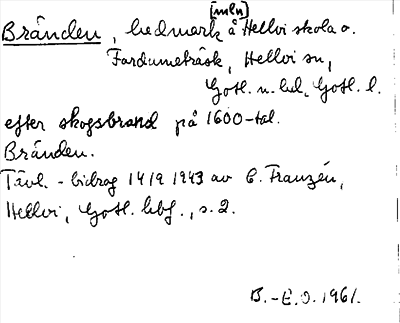 [mln]
Bränden, hedmark å Hellvi skola o.
Fardumeträsk, Hellvi sn,
Gotl. n. hd, Gotl. l.
efter skogsbrand på 1600-tal.
Bränden.
Tävl.-bidrag 14/9 1943 av C. Franzén,
Hellvi, Gotl. hbf., s. 2.
B.-E.O. 1961.